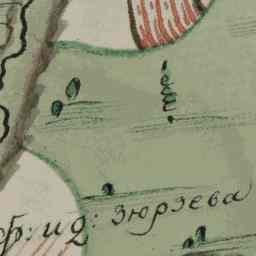 ф: и д: зюрзева